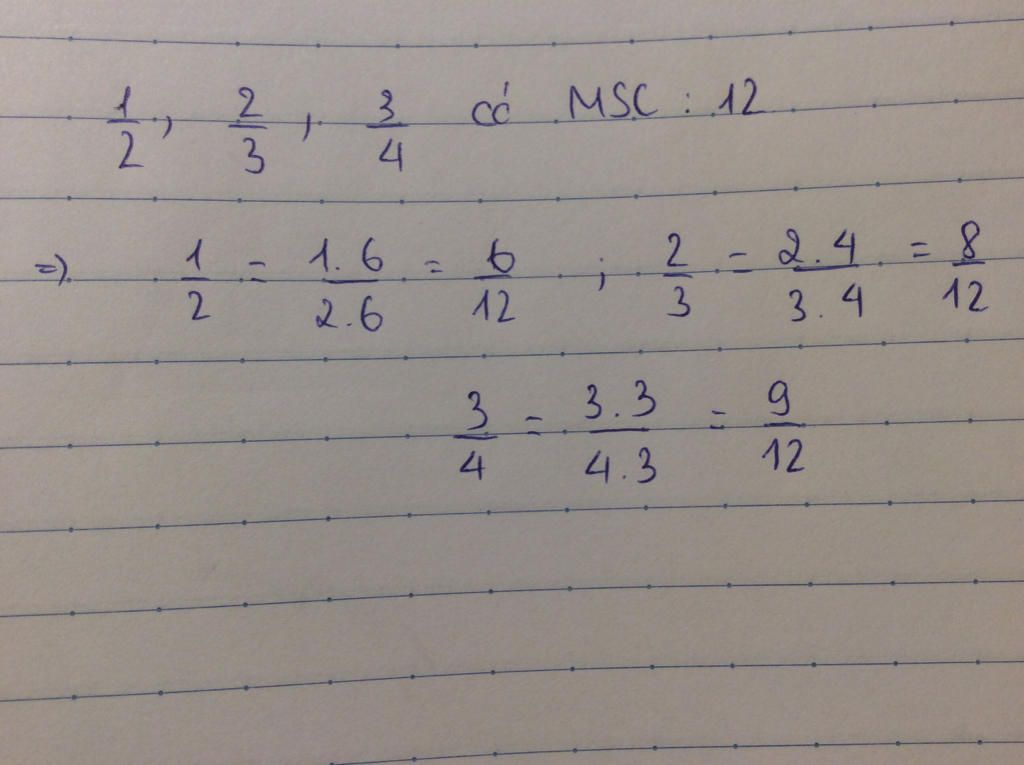 1/2, 2/3, 3/4 có MSC : 12
=> 1/2 = 1.6/2.6 = 6/12 ; 2/3 = 2.4/3.4 = 8/12
3/4 = 3.3/4.3 = 9/12